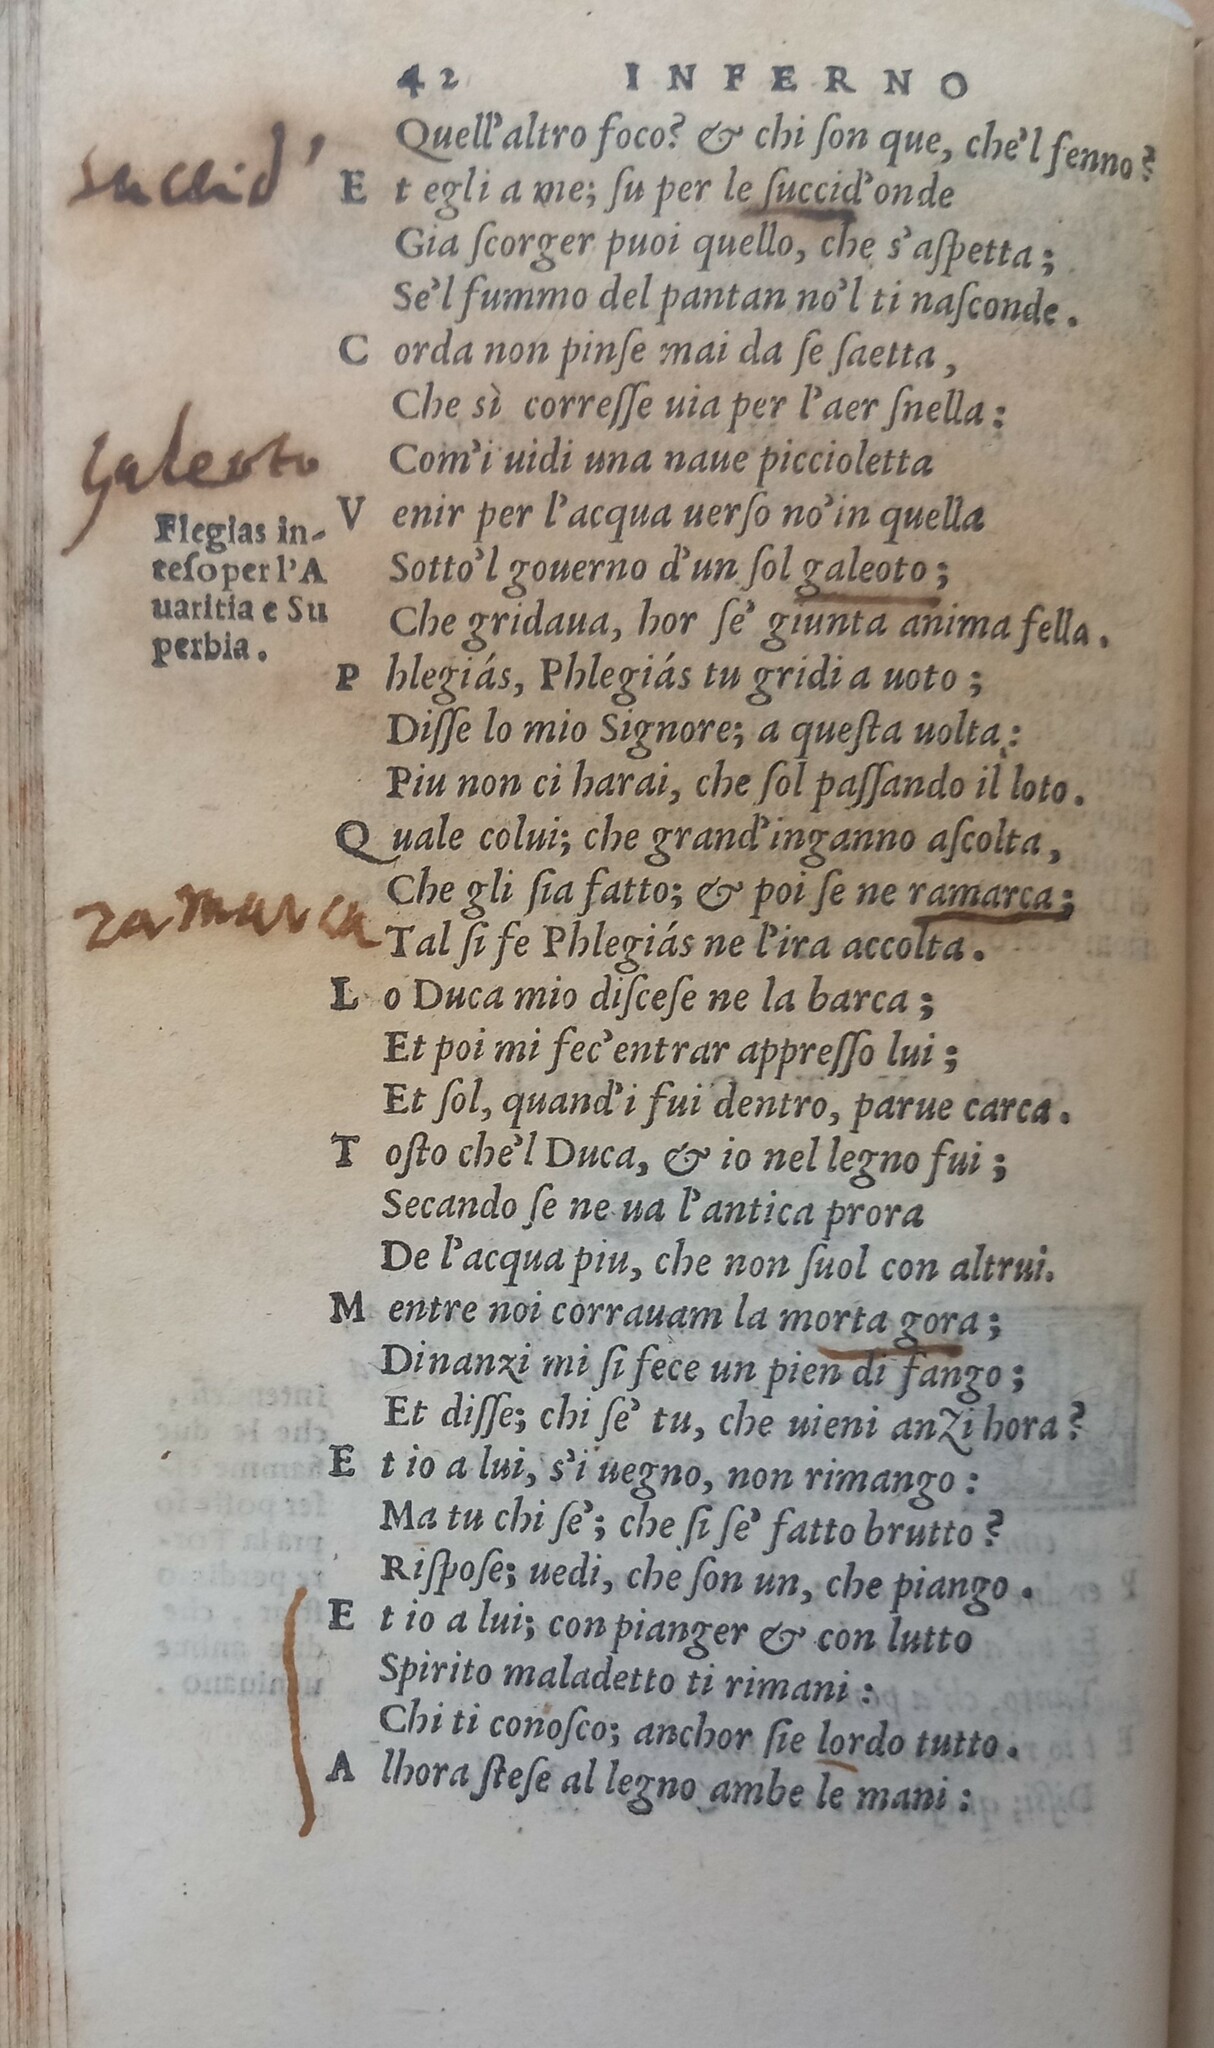 42 INFERNO
Quell'altro foco? & chi ſon que, che'l fenno?
succid'
Et egli a me; ſu per le ſuccid'onde
Gia ſcorger puoi quello, che s'aſpetta;
Se'l fummo del pantan no'l ti naſconde.
Corda non pinſe mai da ſe ſaetta,
Che sì correſſe uia per l'aer ſnella:
Com'i uidi una naue piccioletta
galeoto
Venir per l'acqua uerſo no'in quella
Sotto'l gouerno d'un ſol galeoto;
Che gridaua, hor ſe' giunta anima fella.
Flegias in-
teſo per l'A
uaritia e Su
perbia.
Phlegiás, Phlegiás tu gridi a uoto;
Diſſe lo mio Signore; a queſta uolta:
Piu non ci harai, che ſol paſſando il loto.
Quale colui; che grand'inganno aſcolta,
Che gli ſia fatto; & poi ſe ne ramarca;
ramarca
Tal ſi fe Phlegiás ne l'ira accolta.
Lo Duca mio diſceſe ne la barca;
Et poi mi fec'entrar appreſſo lui;
Et ſol, quand'i fui dentro, parue carca.
Toſto che'l Duca, & io nel legno fui;
Secando ſe ne ua l'antica prora
De l'acqua piu, che non ſuol con altrui.
Mentre noi corrauam la morta gora;
Dinanzi mi ſi fece un pien di fango;
Et diſſe; chi ſe' tu, che uieni anzi hora?
Et io a lui, s'i uegno, non rimango:
Ma tu chi ſe'; che ſi ſe' fatto brutto?
Riſpoſe; uedi, che ſon un, che piango.
Et io a lui; con pianger & con lutto
Spirito maladetto ti rimani:
Chi ti conoſco; anchor ſie lordo tutto.
Alhora ſteſe al legno ambe le mani: